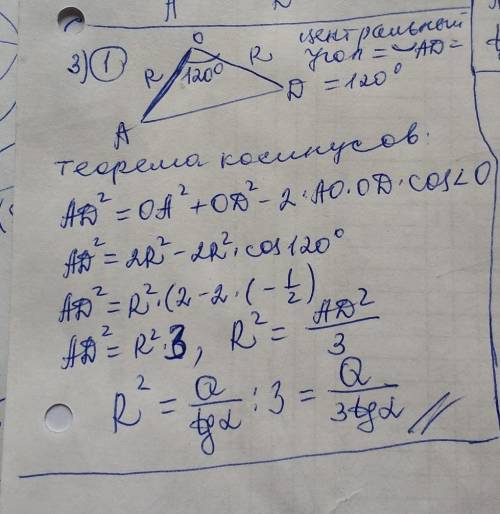 O
центральный
угол = ◡AD =
= 120°
3) 1
R
R
120°
A
D
теорема косинусов.
AD² = OA² + OD² - 2·AO·OD·cos∠O
AD² = 2R² - 2R²·cos120°
AD² = R²·(2 - 2·(-1/2)
AD² = R²·3, R² = AD²/3
R² = Q/tgα : 3 = Q/3tgα //